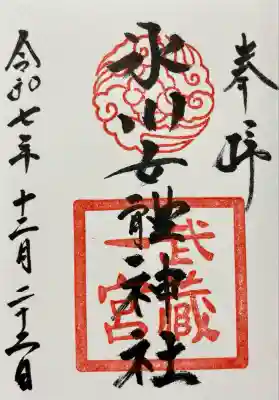 奉拝
氷川女體神社
武蔵
一宮
令和七年十二月二十日